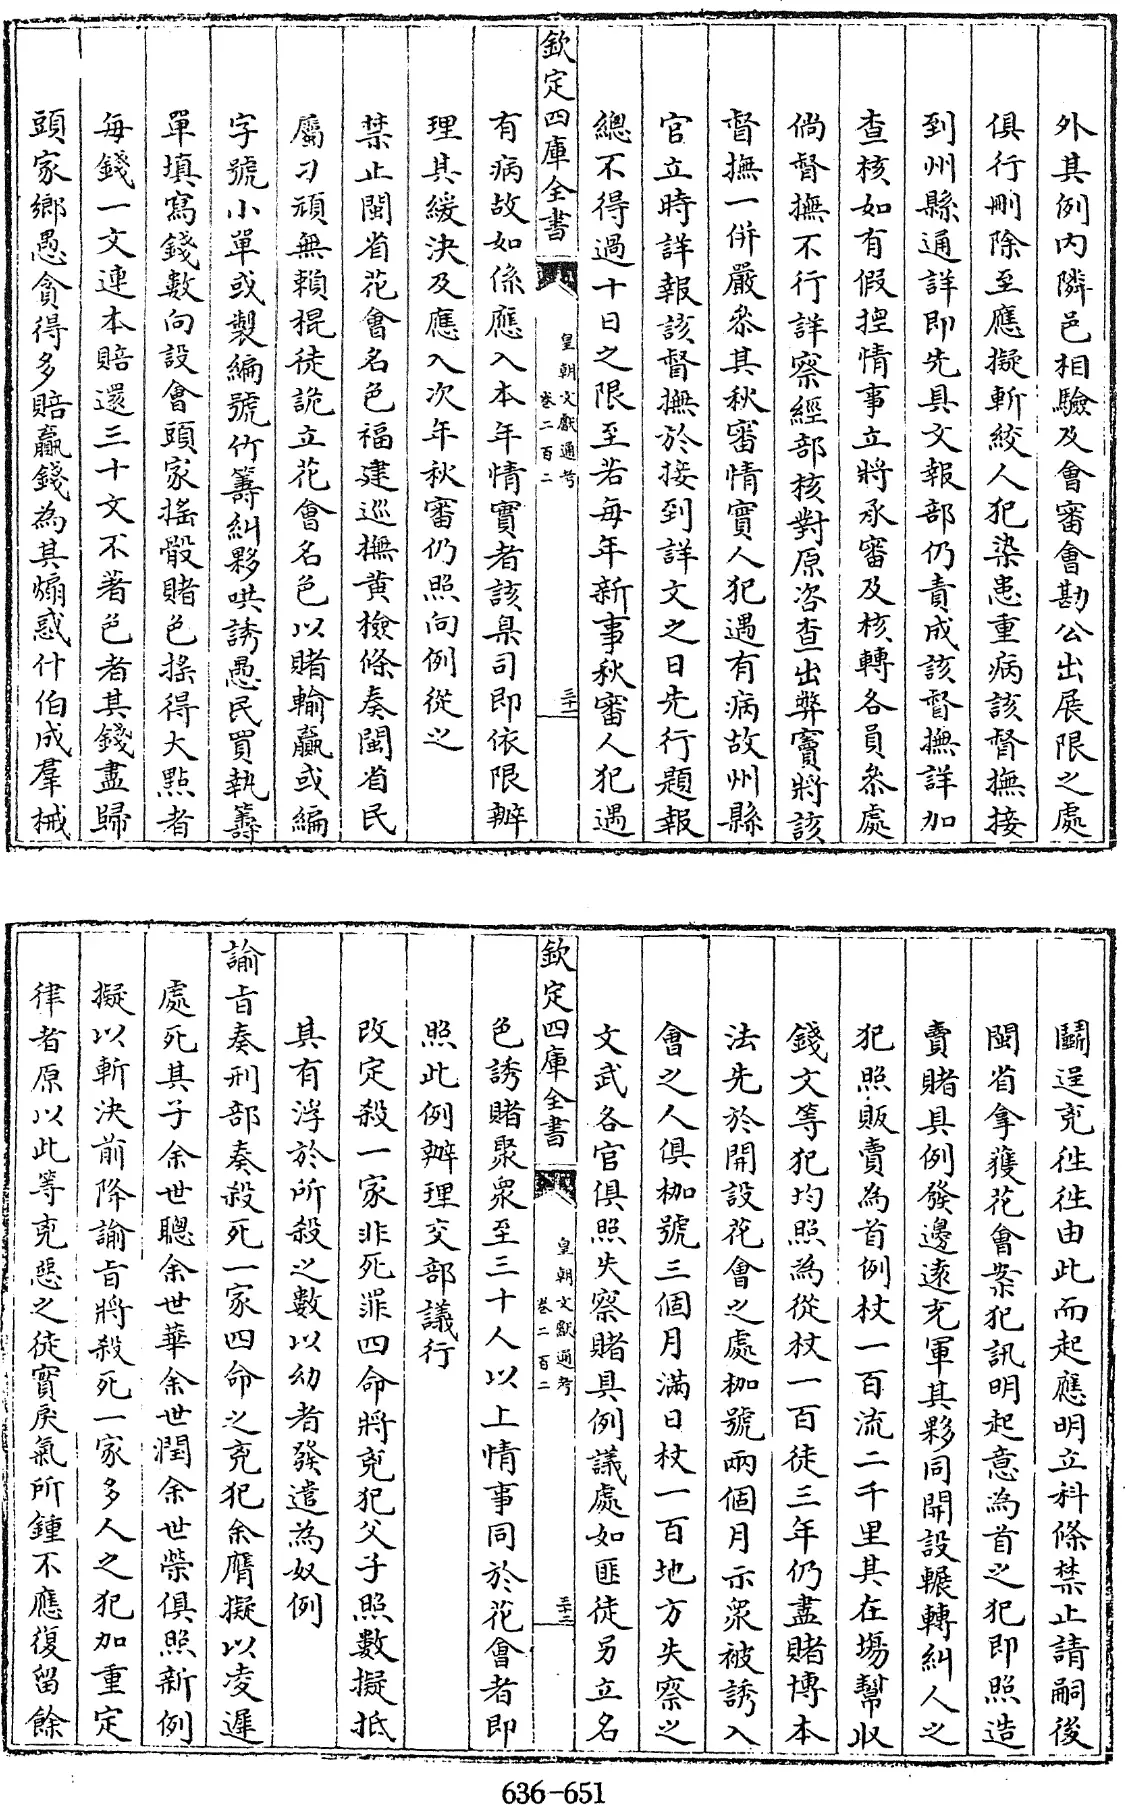 外其例内隣邑相驗及會審會勘公出展限之處
俱行刪除至應擬斬絞人犯染患重病該督撫接
到州縣通詳即先具文報部仍責成該督撫詳加
查核如有假揑情事立將承審及核轉各員叅處
倘督撫不行詳察經部核對原咨查出弊竇將該
督撫一併嚴叅其秋審情實人犯遇有病故州縣
官立時詳報該督撫於接到詳文之日先行題報
總不得過十日之限至若每年新事秋審人犯遇
欽定四庫全書
皇朝文獻通考
卷二百二
三十一
有病故如係應入本年情實者該臬司即依限辦
理其緩決及應入次年秋審仍照向例從之
禁止閩省花會名色福建巡撫黄檢條奏閩省民
屬刁頑無賴棍徒詭立花會名色以賭輸贏或編
字號小單或製編號竹籌糾夥哄誘愚民買執籌
單填寫錢數向設會頭家搖骰賭色搖得大點者
每錢一文連本賠還三十文不著色者其錢盡歸
頭家鄉愚貪得多賠贏錢為其煽惑什伯成羣械
鬭逞兇往往由此而起應明立科條禁止請嗣後
閩省拿獲花會案犯訊明起意為首之犯即照造
賣賭具例發邊遠充軍其夥同開設輾轉糾人之
犯照販賣為首例杖一百流二千里其在場幫收
錢文等犯均照為從杖一百徒三年仍盡賭博本
法先於開設花會之處枷號兩個月示衆被誘入
會之人俱枷號三個月滿日杖一百地方失察之
文武各官俱照失察賭具例議處如匪徒另立名
欽定四庫全書
皇朝文獻通考
卷二百二
三十二
色誘賭聚衆至三十人以上情事同於花會者即
照此例辦理交部議行
改定殺一家非死罪四命將兇犯父子照數擬抵
其有浮於所殺之數以幼者發遣為奴例
諭㫖奏刑部奏殺死一家四命之兇犯余膺擬以凌遲
處死其子余世聰余世華余世潤余世榮俱照新例
擬以斬決前降諭㫖將殺死一家多人之犯加重定
律者原以此等兇惡之徒實戾氣所鍾不應復留餘
636-651